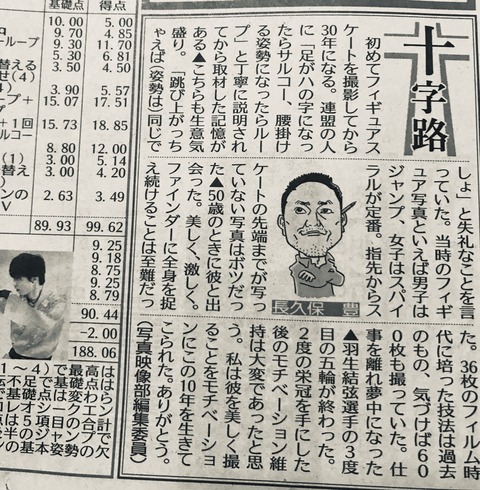 十字路
初めてフィギュアス
ケートを撮影してから
30年になる。連盟の人
に「足が八の字になっ
たらサルコー、腰掛け
る姿勢になったらルー
プ」と丁寧に説明され
てから取材した記憶が
ある▲こちらも生意気
盛り。「跳び上がっち
ゃえば(姿勢は)同じで
しょ」と失礼なことを言
っていた。当時のフィギ
ュア写真といえば男子は
ジャンプ、女子はスパイ
ラルが定番。指先からス
ケートの先端までが写っ
ていない写真はボツだっ
た▲50歳のときに彼と出
会った。美しく、激しく。
ファインダーに全身を捉
え続けることは至難だっ
た。36枚のフィルム時
代に培った技法は過去
のもの、気づけば60
0枚も撮っていた。仕
事を離れ夢中になった
▲羽生結弦選手の3度
目の五輪が終わった。
2度の栄冠を手にした
後のモチベーション維
持は大変であったと思
う。私は彼を美しく撮
ることをモチベーショ
ンにこの10年を生きて
こられた。ありがとう。
(写真映像部編集委員)
長久保 豊
基礎点 得点
10.00 5.00
9.70 4.85
ループ 9.30 11.70
5.30 6.81
替える 3.50 4.50
せ(4)
3.90 5.57
プ+ 15.07 17.51
+1回 15.73 18.85
ルコー
8.80 12.00
(1) 3.00 5.14
替える 3.00 4.20
ンの 2.63 3.49
V
89.93 99.62
9.25
9.18
8.75
9.25
8.79
90.44
-2.00
188.06